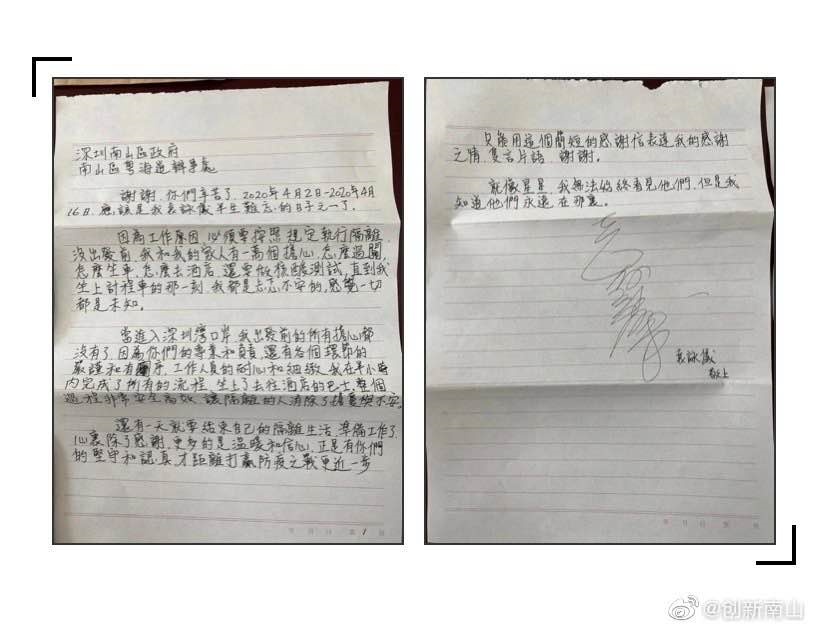 深圳南山區政府
南山區粵海道辦事處
謝謝,你們辛苦了,2020年4月2日-2020年4月
16日,應該是我袁詠儀半生難忘的日子之一了。
因為工作原因,必須要按照規定執行隔離,
沒出發前,我和我的家人有一萬個擔心,怎麼過關,
怎麼坐車,怎麼去酒店,還要做核酸測試,直到我
坐上計程車的那一刻,我都是忐忑不安的,感覺一切
都是未知。
當進入深圳灣口岸,我出發前的所有擔心都
沒有了,因為你們的專業和負責,還有各個環節的
嚴謹和有序,工作人員的耐心和細緻,我在半小時
內完成了所有的流程,坐上了去往酒店的巴士,整個
過程非常安全高效,讓隔離的人消除了擔憂與不安。
還有一天就要結束自己的隔離生活,準備工作了,
心裏除了感謝,更多的是溫暖和信心,正是有你們
的堅守和認真,才距離打贏防疫之戰更近一步
第1頁
只能用這個簡短的感謝信表達我的感謝
之情,隻言片語,謝謝。
就像星星,我無法始終看見他們,但是我
知道他們永遠在那裏。
袁詠儀
敬上
@创新南山